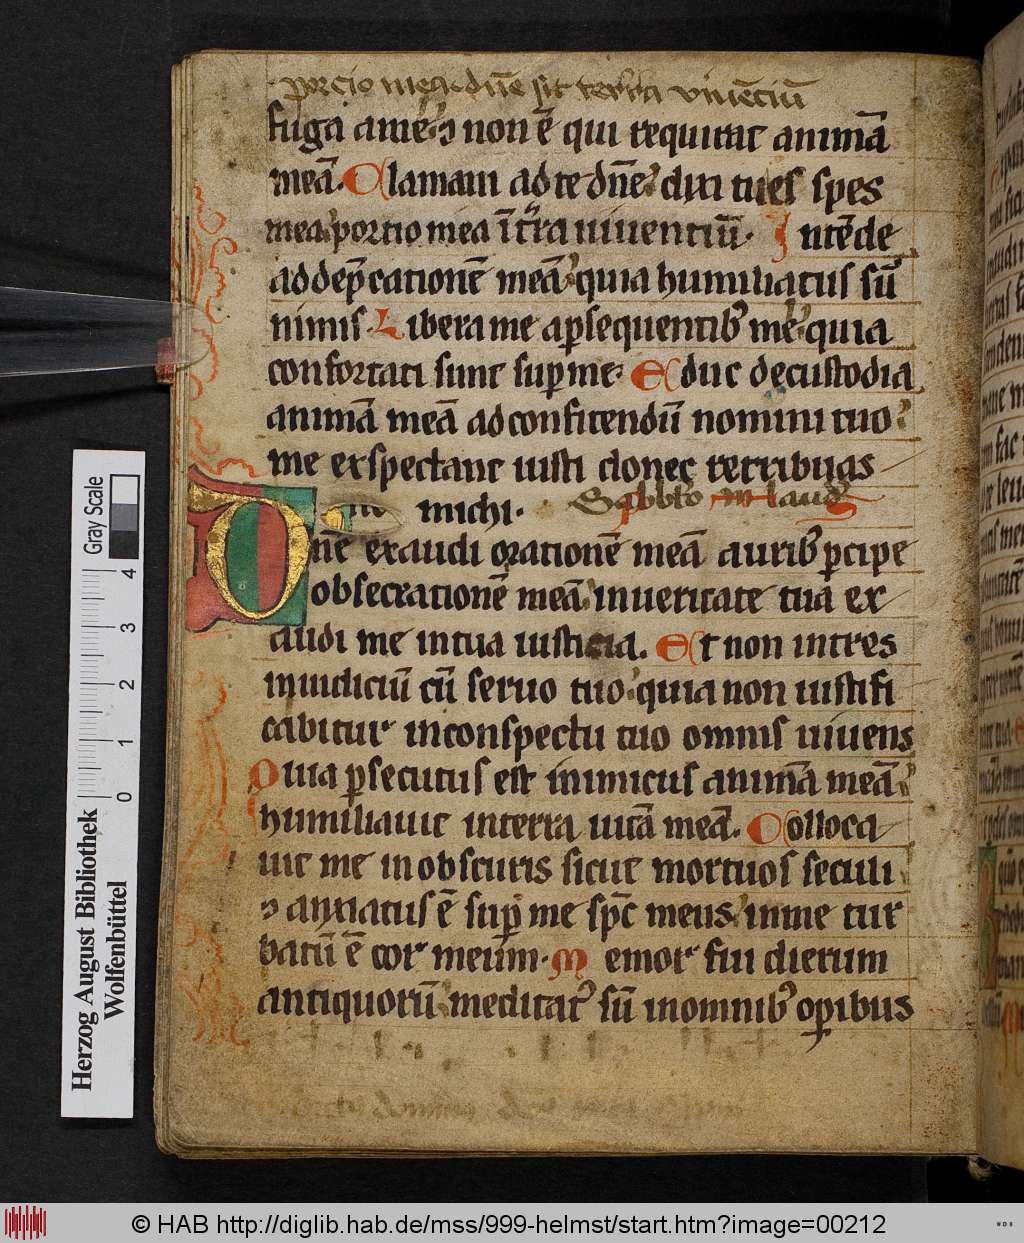 porcio mea dn̄e sit in terra viuēciū
fuga ame ⁊ non ē qui requirat animā
meā. Clamaui ad te dn̄e dixi tu es spes
mea portio mea ī t̓ra uiuentiū. Intēde
ad dep̄cationē meā quia humiliatus sū
nimis. Libera me a ꝑsequentib᾽ me quia
confortati sunt suꝑ me. Educ de custodia
animā meā ad confitendū nomini tuo
me exspectant iusti donec retribuas
michi. Sabbato in laud
Dn̄e exaudi orationē meā aurib᾽ ꝑcipe
obsecrationē meā in ueritate tua ex
audi me in tua iusticia. Et non intres
in iudiciū cū seruo tuo quia non iustifi
cabitur in conspectu tuo omnis uiuens
Quia ꝑsecutus est inimicus animā meā
humiliauit in terra uitā meā. Colloca
uit me in obscuris sicut mortuos seculi
⁊ anxiatus ē suꝑ me sp̄c meus in me tur
batū ē cor meum. Memor fui dierum
antiquorū meditat᾽ sū in omnib᾽ oꝑibus
Gray Scale
4
3
2
1
0
Herzog August Bibliothek
Wolfenbüttel
© HAB http://diglib.hab.de/mss/999-helmst/start.htm?image=00212